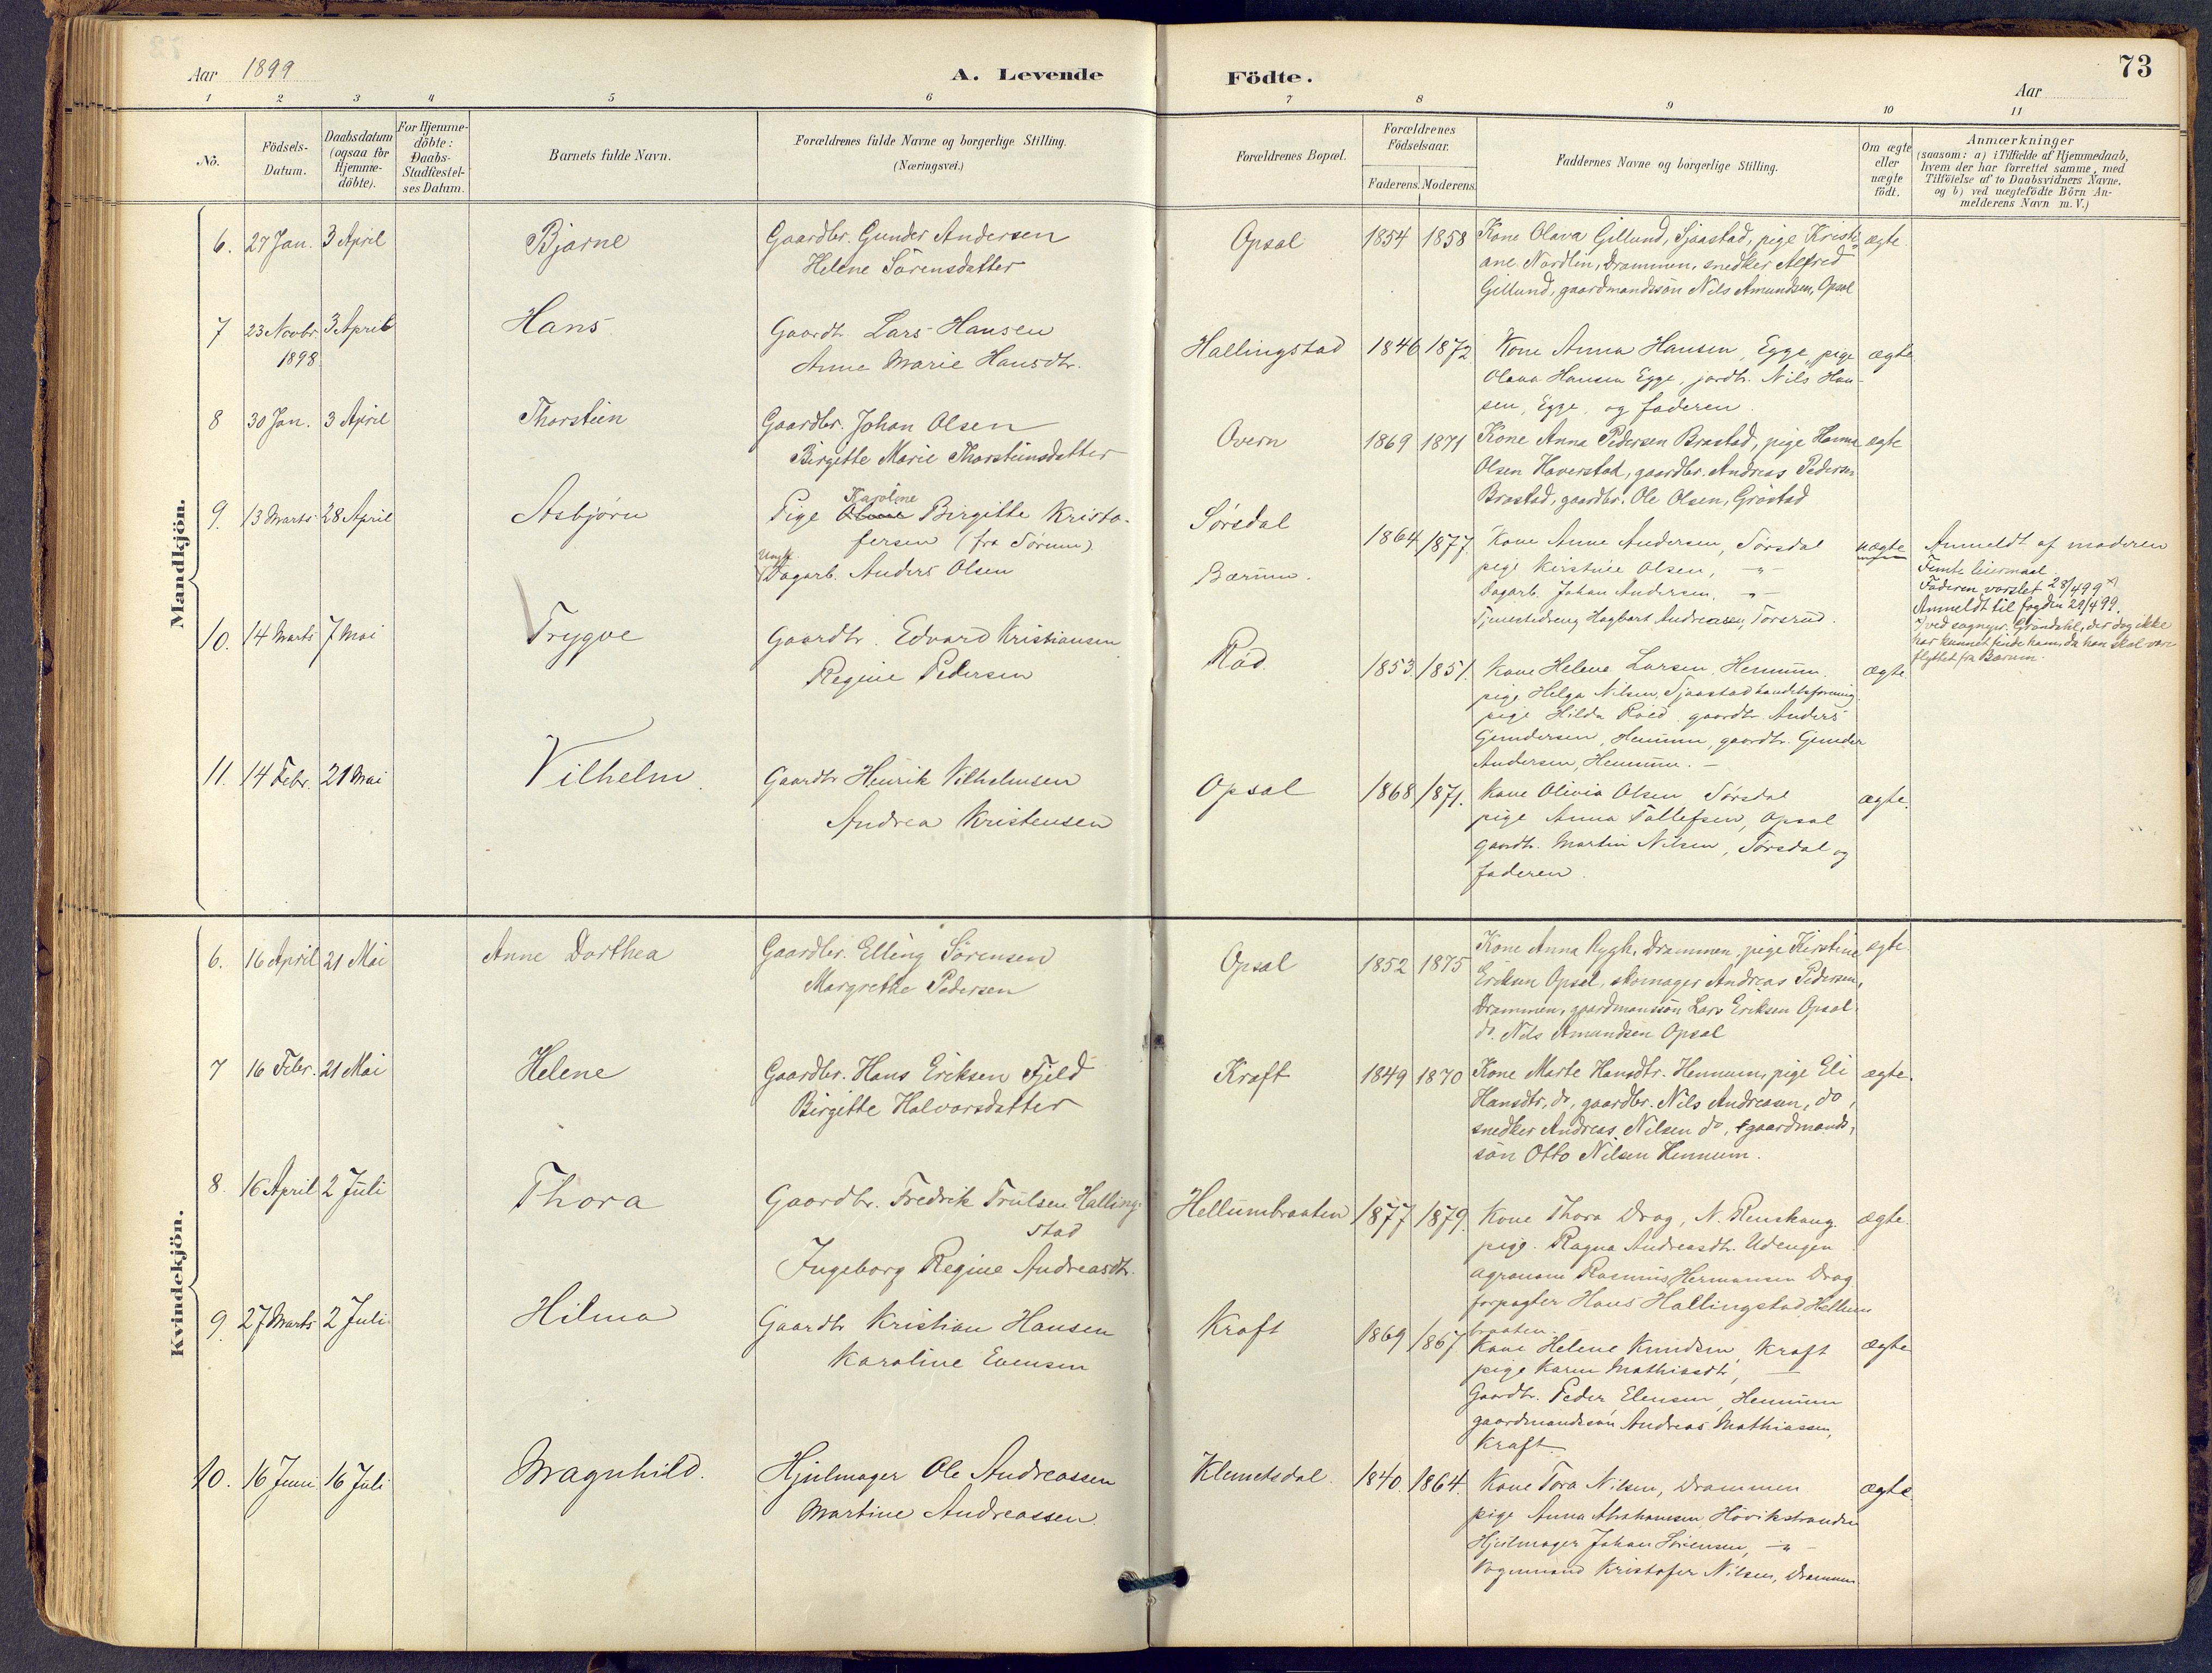 Aar 1899
A. Levende
Födte.
73
Aar
1 2 3 4 5 6 7 8 9 10 11
No.
Födsels-
Datum.
Daabsdatum
(ogsaa for
Hjemme-
döbte).
For Hjemme-
döbte:
Daabs-
Stadfæstel-
ses Datum.
Barnets fulde Navn.
Forældrenes fulde Navne og borgerlige Stilling.
(Næringsvei.)
Forældrenes Bopæl.
Forældrenes
Födselsaar.
Faderens. Moderens.
Faddernes Navne og borgerlige Stilling.
Om ægte
eller
uægte
födt.
Anmærkninger
(saasom: a) i Tilfælde af Hjemmedaab,
hvem der har forrettet samme, med
Tilföielse af to Daabsvidners Navne.
og b) ved uægtefödte Börn An-
melderens Navn m. V.)
Mandkjön.
6. 27 Jan. 3 April Bjarne
Gaardbr. Gunder Andersen
Helene Sörensdatter
Opsal 1854 1858
Kone Olava Gillund, Sjaastad, pige Kristi-
ane Nordlin, Drammen, snedker Alfred
Gillund, gaardmandssön Nils Amundsen, Opsal
ægte
7 23 Novbr. 3 April Hans
1898
Gaardbr. Lars Hansen
Anne Marie Hansdtr.
Hallingstad 1846 1872
Kone Anna Hansen, Egge, pige
Olava Hansen Egge, jordbr. Nils Han-
sen, Egge, og faderen.
ægte
8 30 Jan. 3 April Thorstein
Gaardbr. Johan Olsen
Birgitte Marie Thorsteinsdatter
Overn 1869 1871
Kone Anna Pedersen Brastad, pige Hanna
Olsen Haverstad, gaardbr. Andreas Pedersen
Brastad, gaardbr. Ole Olsen, Gröstad
ægte
9. 13 Marts 28 April Asbjörn
Karoline
Pige Birgitte Kristo-
fersen (fra Sörum)
Ungk.
Dagarb. Anders Olsen
Sørsdal
Bærum.
1864 1877
Kone Anne Andersen, Sørsdal
pige Kirstine Olsen, -"-
Dagarb. Johan Andersen, -"-
Tjenestedreng Hagbart Andreasen, Torsrud.
uægte
Anmeldt af moderen
Femte leiermaal.
Faderen varslet 28/4 99 x)
Anmeldt til fogden 29/4 99.
x) ved sognepr. Gröndahl, der dog ikke
har kunnet finde ham, da han skal være
flyttet fra Bærum.
10. 14 Marts 7 Mai Trygve
Gaardbr. Edvard Kristiansen
Regine Pedersen
Röd. 1853. 1851.
Kone Helene Larsen, Hennum.
pige Helga Nilsen, Sjaastad handelsforening
pige Hilda Röed. gaardbr. Anders
Gundersen, Hennum, gaardbr. Gunder
Andersen, Hennum. -
ægte.
11. 14 Febr. 21 Mai Vilhelm.
Gaardbr. Henrik Vilhelmsen
Andrea Kristensen
Opsal 1868 1871.
Kone Olivia Olsen Sørsdal
pige Anna Tollefsen, Opsal
gaardbr. Martin Nilsen, Sørsdal og
faderen.
ægte.
Kvindekjön.
6. 16 April 21 Mai Anne Dorthea
Gaardbr. Elling Sörensen
Margrethe Pedersen
Opsal 1852 1875
Kone Anna Rygh, Drammen, pige Kirstine
Eriksen Opsal, skomager Andreas Pedersen,
Drammen, gaardmanssön Lars Eriksen Opsal.
do. Nils Amundsen Opsal
ægte.
7 16 Febr. 21 Mai Helene
Gaardbr. Hans Eriksen Fjeld
Birgitte Halvorsdatter
Kraft 1849 1870
Kone Marte Hansdtr. Hennum, pige Eli
Hansdtr, do, gaardbr. Nils Andreasen, do,
snedker Andreas Nilsen do, gaardmands-
sön Otto Nilsen Hennum.
ægte.
8. 16 April 2 Juli Thora
Gaardbr. Fredrik Trulsen Halling-
stad
Ingeborg Regine Andreasdtr.
Hellumbraaten 1877 1879.
Kone Thora Drag, N. Renskaug.
pige. Ragna Andreasdtr. Udengen
agronom Rasmus Hermansen Drag
forpagter Hans Hallingstad Hellum
braaten.
ægte.
9. 27 Marts 2 Juli Hilma
Gaardbr. Kristian Hansen
Karoline Evensen
Kraft 1869 1867
Kone Helene Knudsen, Kraft
pige Karen Mathiasdtr,
Gaardbr. Peder Elensen, Hennum
gaardmandssön Andreas Mathiassen,
Kraft.
ægte
10. 16 Juni 16 Juli Magnhild.
Hjulmager Ole Andreassen
Martine Andreassen.
Klemetsdal. 1840. 1864.
Kone Tora Nilsen, Drammen
pige Anna Abrahamsen Hövikstranden
Hjulmager Johan Sörensen, -"-
Vognmand Kristofer Nilsen, Drammen
ægte.